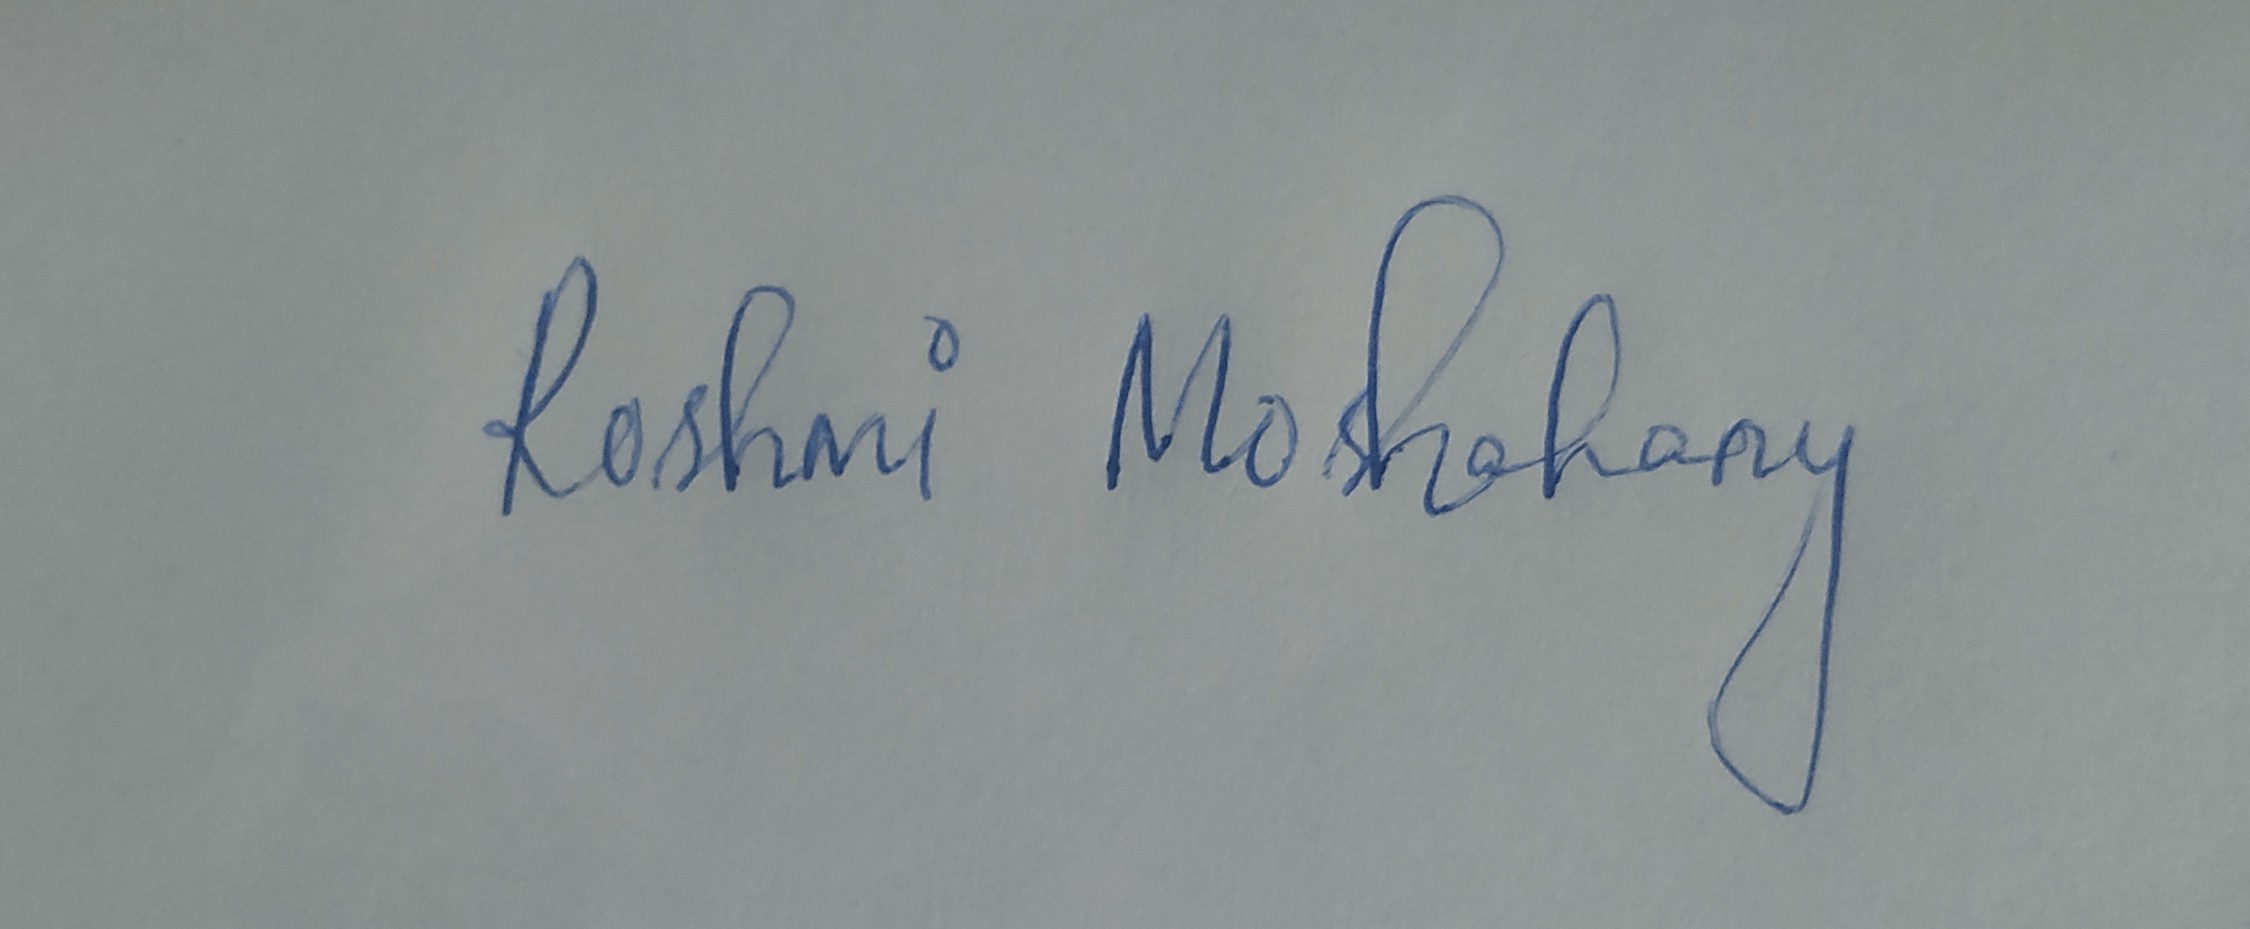 Roshmi Moshahary